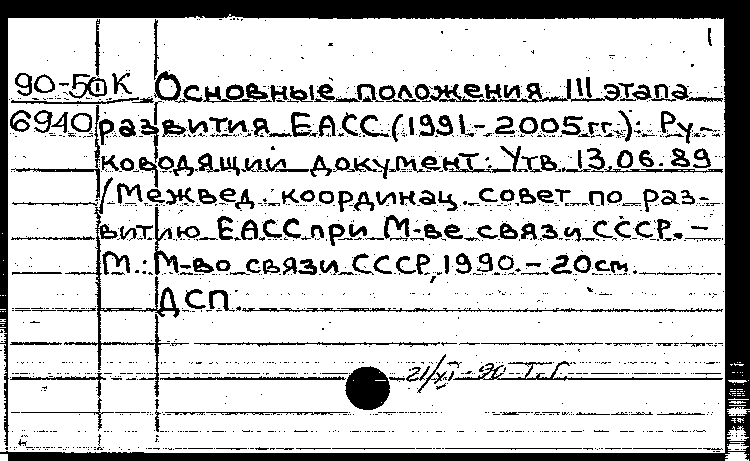 1
90-50К Основные положения III этапа
6940 развития ЕАСС (1991-2005гг.): Ру-
ководящий документ: Утв. 13.06.89
/Межвед. координац. совет по раз-
витию ЕАСС при М-ве связи СССР. -
М.: М-во связи СССР, 1990. - 20см.
ДСП.
21/XI-90 Т.Г.